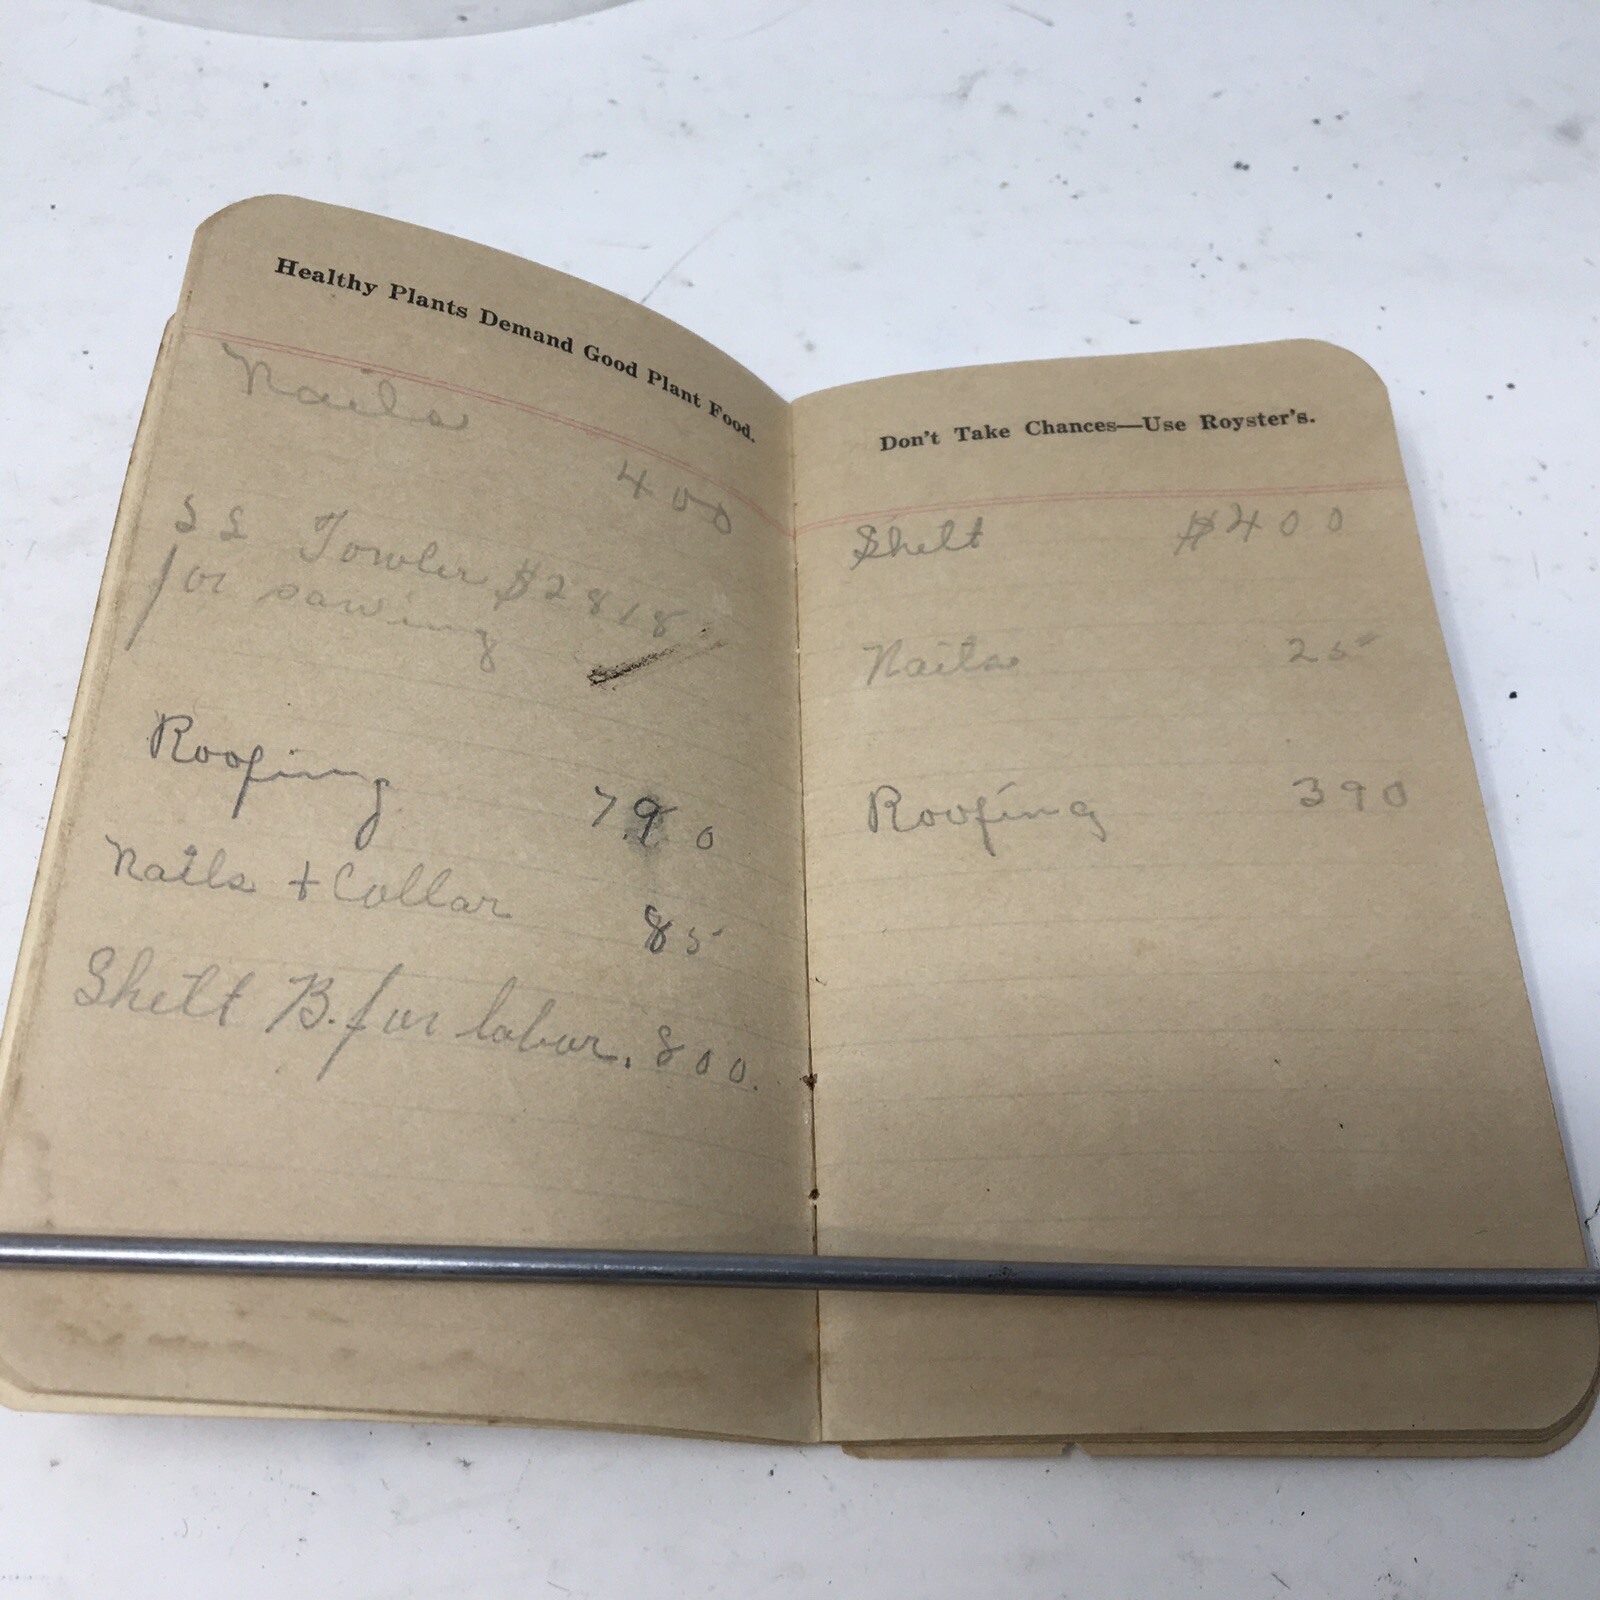 Healthy Plants Demand Good Plant Food.
Nails
400
S S Towler $2818
for sawing
Roofing 790
Nails + Collar 85
Shelt B. for labor. 800.
Don't Take Chances—Use Royster's.
Shelt $400
Nails 25
Roofing 390